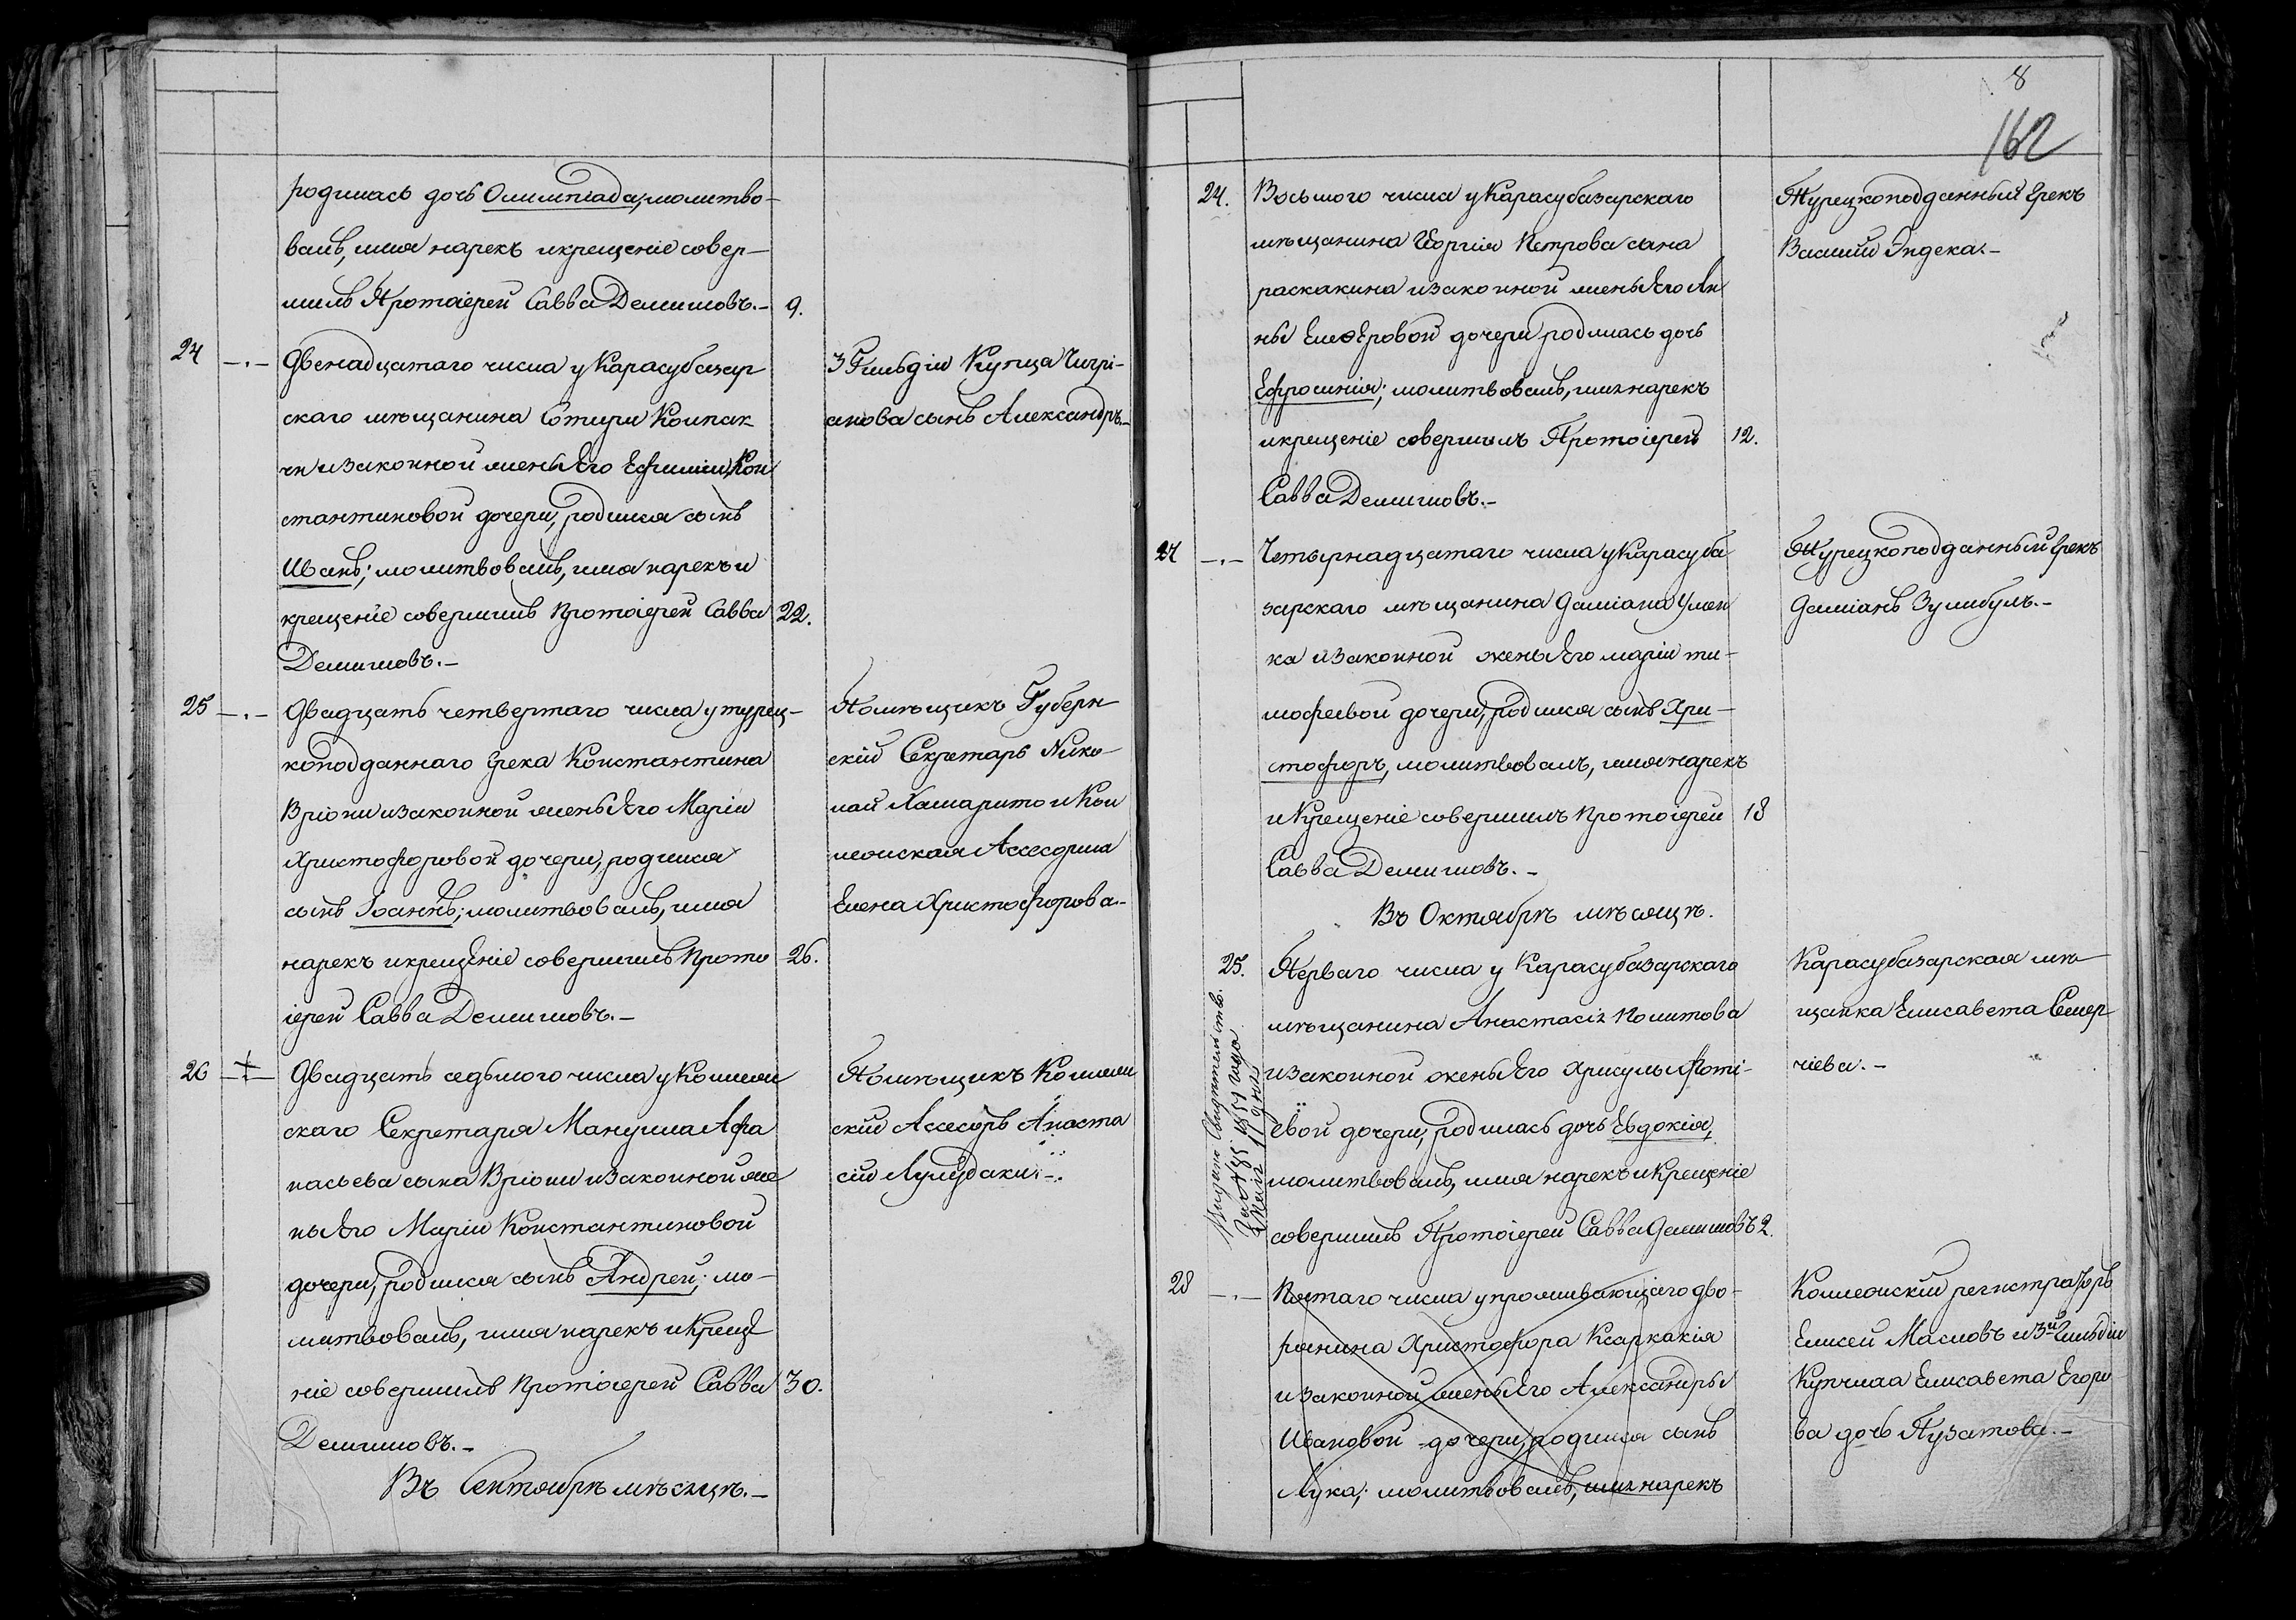 родилась дочь Олимпіада, молитво-
валъ, имя нарекъ и крещеніе совер-
шилъ Протоіерей Савва Демишовъ.- 9.
24 -.- Двенадцатаго числа у Карасубазар
скаго мѣщанина Сотири Колпак
чи и законной жены Его Ефиміи Кон
стантиновой дочери, родился сынъ
Иванъ; молитвовалъ, имя нарекъ и
крещеніе совершилъ Протоіерей Савва 22.
Демишовъ.-
3 Гильдіи Купца Чигрі-
анова сынъ Александръ.-
25 -.- Двадцать четвертаго числа у турец-
коподданнаго Грека Константина
Вріони и законной жены Его Маріи
Христофоровой дочери, родился
сынъ Іоаннъ; молитвовалъ, имя
нарекъ и крещеніе совершилъ Прото 26.
іерей Савва Демишовъ.-
Помѣщикъ Губерн
скій Секретарь Нико-
лай Хамарито и Кол
лежская Ассесорша
Елена Христофорова.-
26 Двадцать седьмого числа у Коллеж
скаго Секретаря Мануила Афа
насьева сына Вріони и законной же
ны Его Маріи Константиновой
дочери, родился сынъ Андрей; мо-
литвовалъ, имя нарекъ и Креще
ніе совершилъ Протоіерей Савва 30.
Демишовъ.-
Помѣщикъ Коллеж
скій Ассесоръ Анаста
сій Лулудаки.-
Въ Сентябрѣ мѣсяцѣ.-
8
162
24. Восьмого числа у Карасубазарскаго
мѣщанина Георгія Петрова сына
раскакина и законной жены Его Ан
ны Елеферовой дочери родилась дочь
Ефросинія; молитвовалъ, имя нарекъ
и крещеніе совершилъ Протоіерей 12.
Савва Демишовъ.-
Турецкоподданный Грекъ
Василій Индека.-
27 -.- Четырнадцатаго числа у Карасуба
зарскаго мѣщанина Даміана Улан
ка и законной жены Его Маріи ти-
мофеевой дочери, родился сынъ Хри-
стофоръ, молитвовалъ, имя нарекъ
и Крещеніе совершилъ Протоіерей 18
Савва Демишовъ.-
Турецкоподданный Грекъ
Даміанъ Зумбулъ.-
Въ Октябрѣ мѣсяцѣ.
25. Перваго числа у Карасубазарскаго
мѣщанина Анастасія Политова
и законной жены Его Хрисулы Фоті-
евой дочери, родилась дочь Евдокія,
молитвовалъ, имя нарекъ и Крещеніе
совершилъ Протоіерей Савва Демишовъ 2.
Карасубазарская мѣ
щанка Елисавета Семер
чіева.-
Выдано Свидѣтельств.
За № 85 1851 года
17 дня
28 -.- Пятаго числа у проживающаго дво-
рянина Христофора Ксаркакія
и законной жены Его Александры
Ивановой дочери, родился сынъ
Лука; молитвовалъ, имя нарекъ
Коллежскій регистраторъ
Елисей Масловъ и 3й Гильдіи
Купчиха Елисавета Егоро
ва дочь Пузатова.-